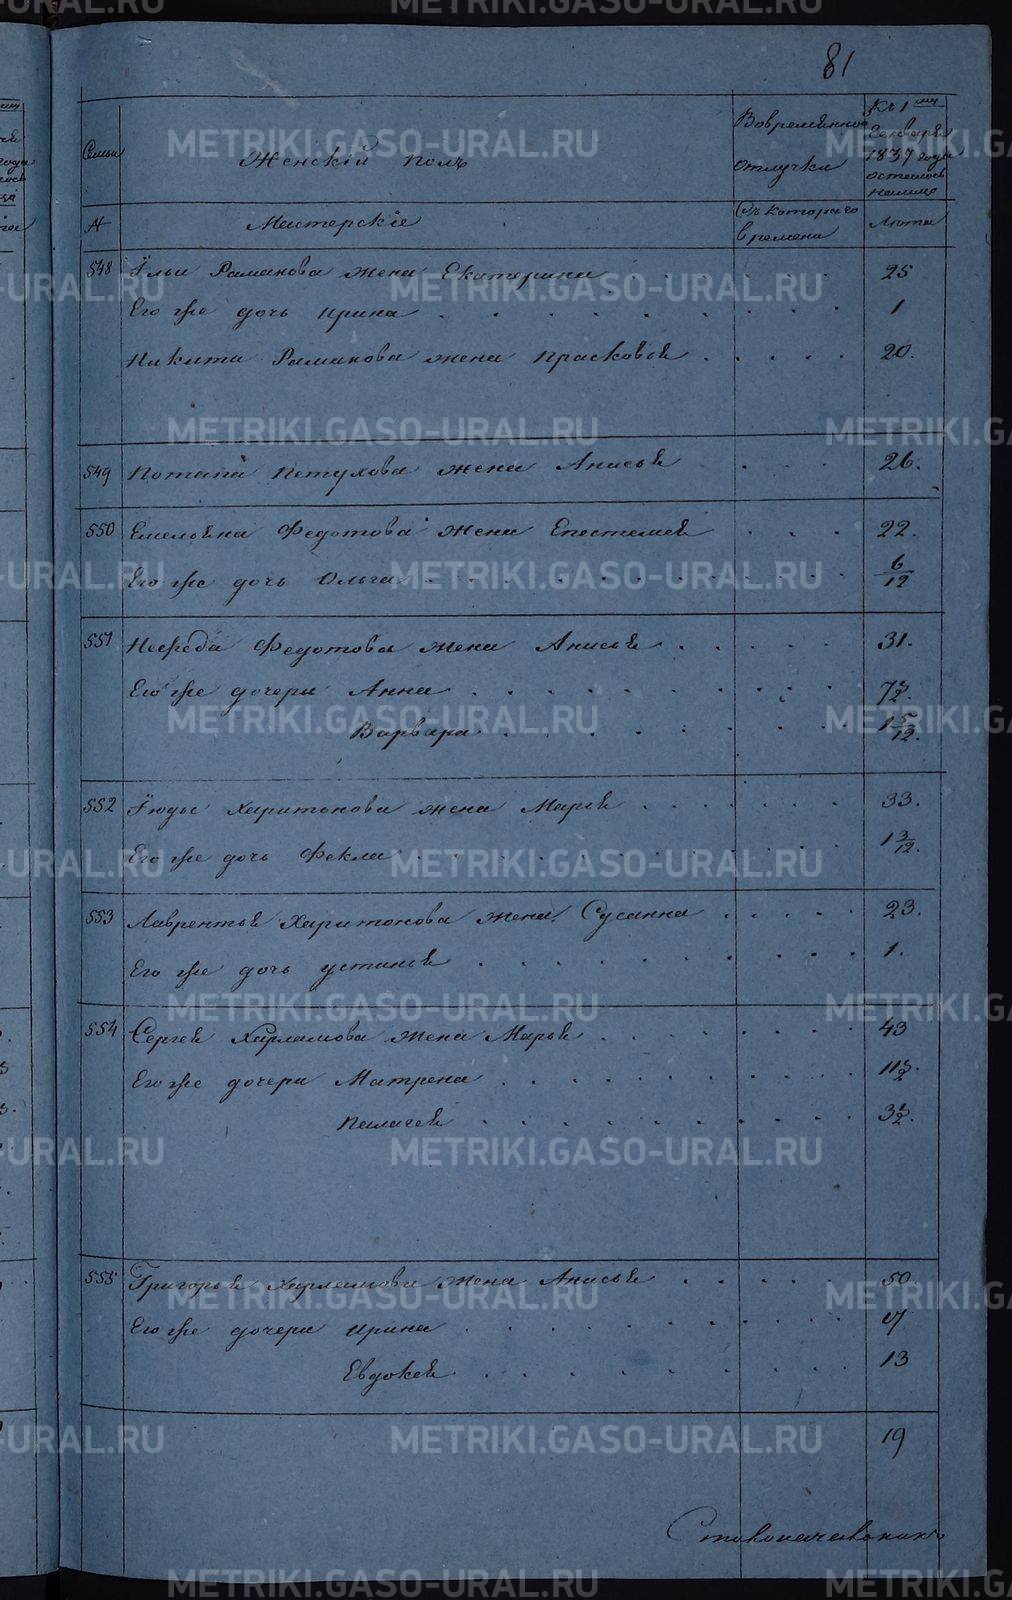 81
Семьи
Женскій полъ
Вовременной отлучке
Къ 1му Генваря 1837 года осталось налицо
№
Мастерскіе
Съ котораго времени
Лѣта
548 Ильи Раманова жена Екатерина 25
Его же дочь Ирина 1
Никита Раманова жена Прасковья 20.
549 Потапа Петухова жена Анисья 26.
550 Емельяна Федотова жена Епестемея 22.
Его же дочь Ольга 6/12
551 Нефеда Федотова жена Анисья 31.
Его же дочери Анна 7 1/2.
Варвара 1 5/12.
552 Гюды Харитонова жена Марья 33.
Его же дочь Фекла 1 3/12.
553 Лаврентья Харитонова жена Сусанна 23.
Его же дочь устинья 1.
554 Сергея Харламова жена Марья 43
Его же дочери Матрена 11 1/2.
Палагея 3 1/2.
555 Григорья Харламова жена Анисья 50.
Его же дочери Ирина 17
Евдокея 13
19
METRIKI.GASO-URAL.RU